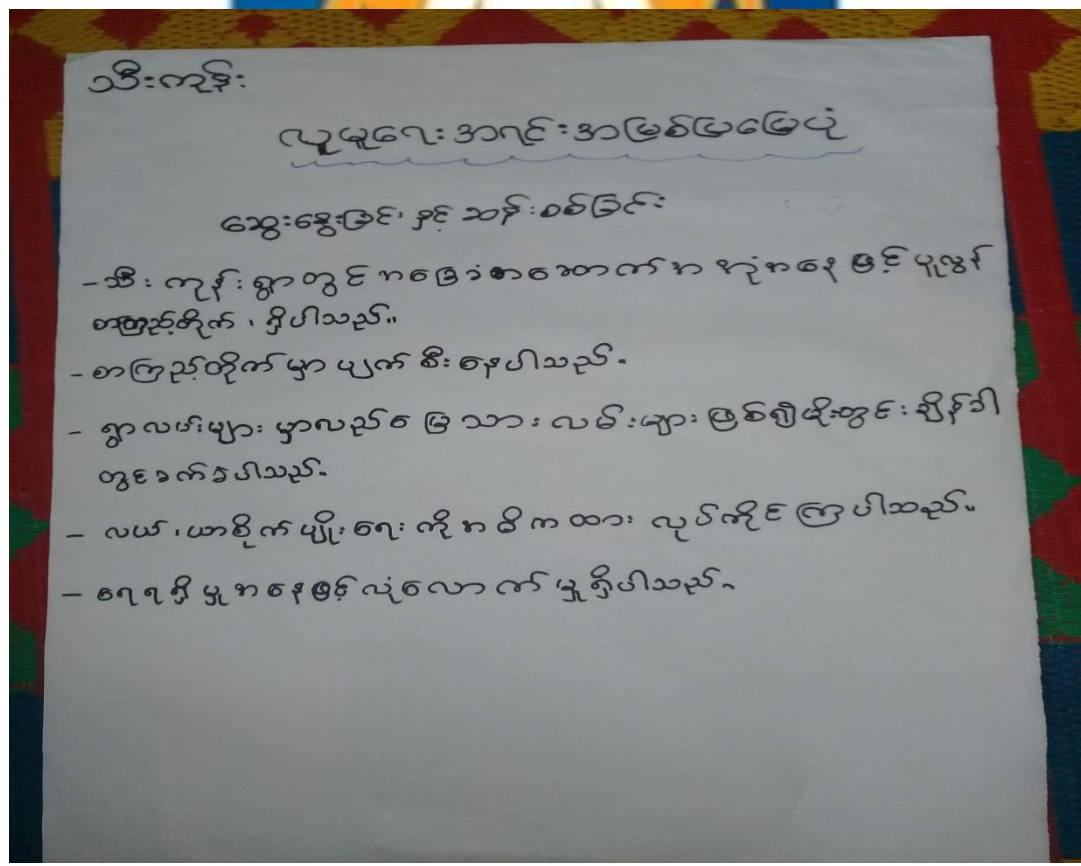 သီးကုန်း
လူမှုရေးအရင်းအမြစ်ပြမြေပုံ
ဆွေးနွေးခြင်း နှင့် ဆန်းစစ်ခြင်း
- သီးကုန်းရွာတွင် အခြေခံအဆောက်အအုံအနေဖြင့် မူလွန်
စာကြည့်တိုက်၊ ရှိပါသည်။
- စာကြည့်တိုက်မှာ ပျက်စီးနေပါသည်။
- ရွာလမ်းများမှာလည်မြေသားလမ်းများဖြစ်၍မိုးတွင်းချိန်ခါ
တွင်ခက်ခဲပါသည်။
- လယ်၊ယာစိုက်ပျိုးရေးကိုအဓိကထားလုပ်ကိုင်ကြပါသည်။
- ရေရရှိမှုအနေဖြင့်လုံလောက်မှုရှိပါသည်။